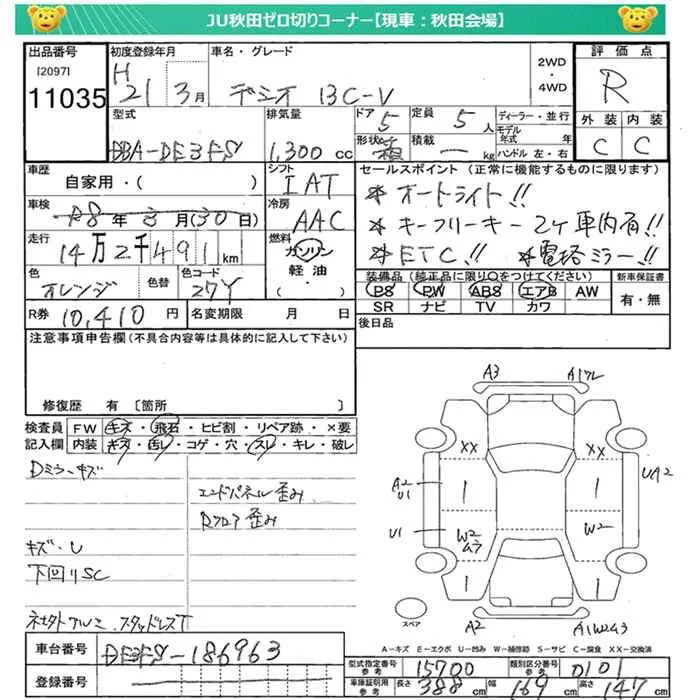 JU秋田ゼロ切りコーナー【現車：秋田会場】
出品番号 初度登録年月 車名・グレード 2WD・4WD 評価点
[2097] H 21 3月 デミオ 13C-V R
11035
型式 排気量 ドア 5 定員 5人 ディーラー・並行 外装 内装
モデル年式 年
DBA-DE3FS 1,300cc 形状 箱 積載 ー kg ハンドル 左・右 C C
車歴 シフト セールスポイント (正常に機能するものに限ります)
自家用・( ) IAT ＊オートライト!!
車検 冷房 ＊キーフリーキー 2ケ車内有!!
R8年3月(30日) AAC
走行 燃料 ＊ETC!! ＊電格ミラー!!
14万2千491km ガソリン
軽油・( )
色 色替 色コード 装備品 (純正品に限り○をつけてください) 新車保証書
オレンジ 27Y PS PW ABS エアB AW 有・無
SR ナビ TV カワ
R券 10,410円 名変期限 月 日 後日品
注意事項申告欄 (不具合内容等は具体的に記入して下さい)
修復歴 有 〔箇所 〕
検査員記入欄 FW キズ・飛石・ヒビ割・リペア跡・×要
内装 キズ・汚レ・コゲ・穴・スレ・キレ・破レ
Dミラーキズ
エンドパネル歪み
Rフロア歪み
キズ・U
下回りSC
ネセタトアルミ スタッドレスT
A3 A1ワレ
XX XX
A2 U1 UA2
U1 W2 ムラ W2
スペア
A2 A1W2U3
A-キズ E-エクボ U-凹み W-補修跡 S-サビ C-腐食 XX-交換済
車台番号 DE3FS-186963
登録番号
型式指定番号 参考 15700 類別区分番号 参考 0101
車庫証明用 参考 長さ 388cm 幅 169cm 高さ 147cm